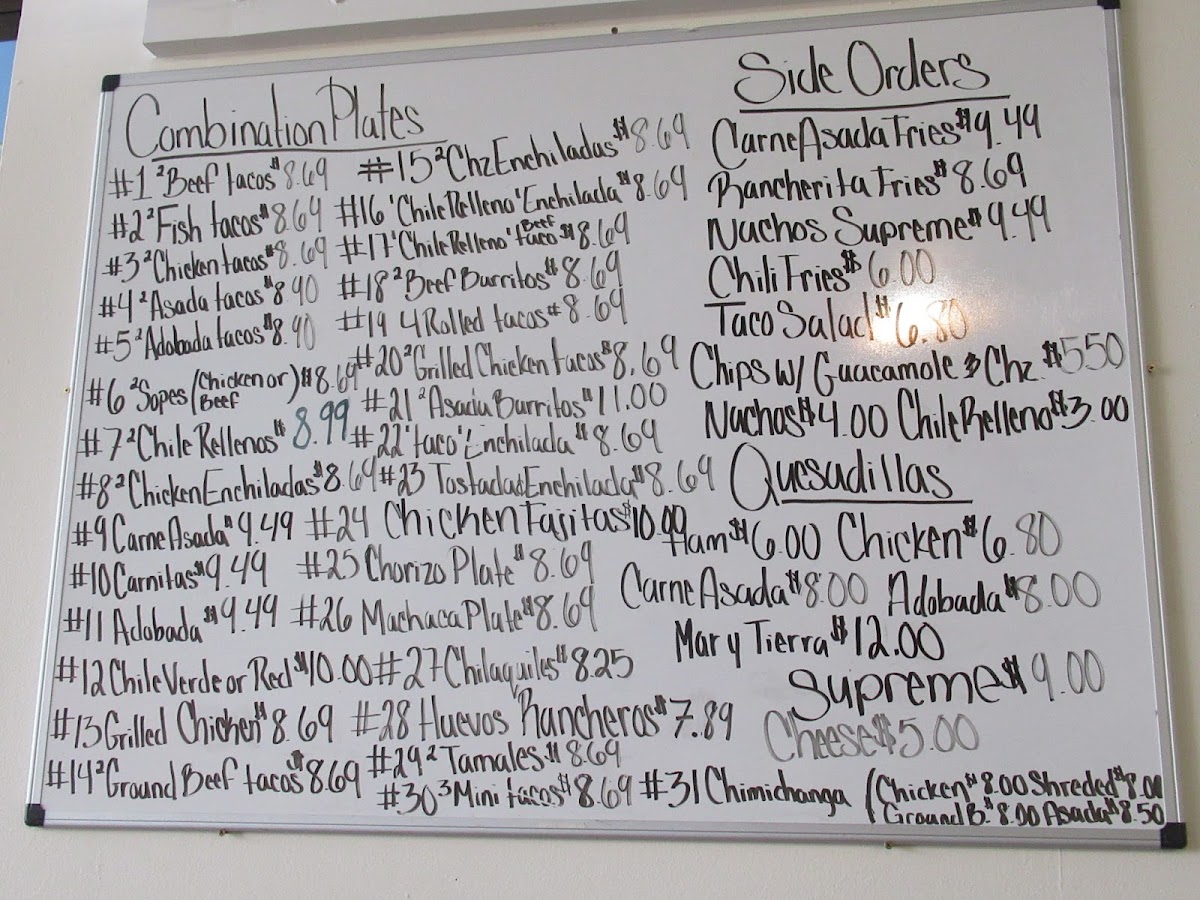 Combination Plates
#1 2 Beef tacos $8.69
#2 2 Fish tacos $8.69
#3 2 Chicken tacos $8.69
#4 2 Asada tacos $8.90
#5 2 Adobada tacos $8.90
#6 2 Sopes (Chicken or Beef) $8.69
#7 2 Chile Rellenos $8.99
#8 2 Chicken Enchiladas $8.69
#9 Carne Asada $9.49
#10 Carnitas $9.49
#11 Adobada $9.49
#12 Chile Verde or Red $10.00
#13 Grilled Chicken $8.69
#14 2 Ground Beef tacos $8.69
#15 2 Chz Enchiladas $8.69
#16 1 Chile Relleno 1 Enchilada $8.69
#17 1 Chile Relleno 1 Beef taco $8.69
#18 2 Beef Burritos $8.69
#19 4 Rolled tacos $8.69
#20 2 Grilled Chicken tacos $8.69
#21 2 Asada Burritos $11.00
#22 1 taco 1 Enchilada $8.69
#23 Tostada & Enchilada $8.69
#24 Chicken Fajitas $10.00
#25 Chorizo Plate $8.69
#26 Machaca Plate $8.69
#27 Chilaquiles $8.25
#28 Huevos Rancheros $7.89
#29 2 Tamales $8.69
#30 3 Mini tacos $8.69
#31 Chimichanga (Chicken $8.00 Shreded $8.00
Ground B. $8.00 Asada $8.50
Side Orders
Carne Asada Fries $9.49
Rancherita Fries $8.69
Nachos Supreme $9.49
Chili Fries $6.00
Taco Salad $6.80
Chips w/ Guacamole & Chz $5.50
Nachos $4.00 Chile Relleno $3.00
Quesadillas
Ham $6.00 Chicken $6.80
Carne Asada $8.00 Adobada $8.00
Mar y Tierra $12.00
Supreme $9.00
Cheese $5.00